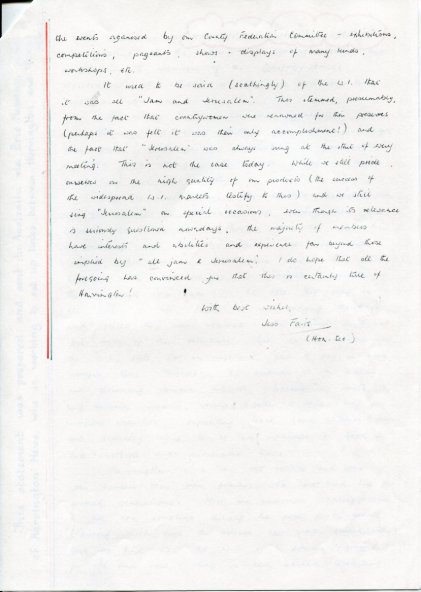 the events organised by our County Federation Committee - exhibitions,
competitions, pageants, shows + displays of many kinds,
workshops, etc.
It used to be said (scathingly) of the W.I. that
it was all "Jam and Jerusalem". This stemmed, presumably,
from the fact that countrywomen were renowned for their preserves
(perhaps it was felt it was their only accomplishment!) and
the fact that "Jerusalem" was always sung at the start of every
meeting. This is not the case today. While we still pride
ourselves on the high quality of our products (the success of
the widespread W.I. markets testify to this) and we still
sing "Jerusalem" on special occasions, even though its relevance
is seriously questioned nowadays, the majority of members
have interests and abilities and experience far beyond those
implied by "all jam & Jerusalem". I do hope that all the
foregoing have convinced you that this is certainly true of
Harrington!
With best wishes,
Jess
(Hon. Sec)